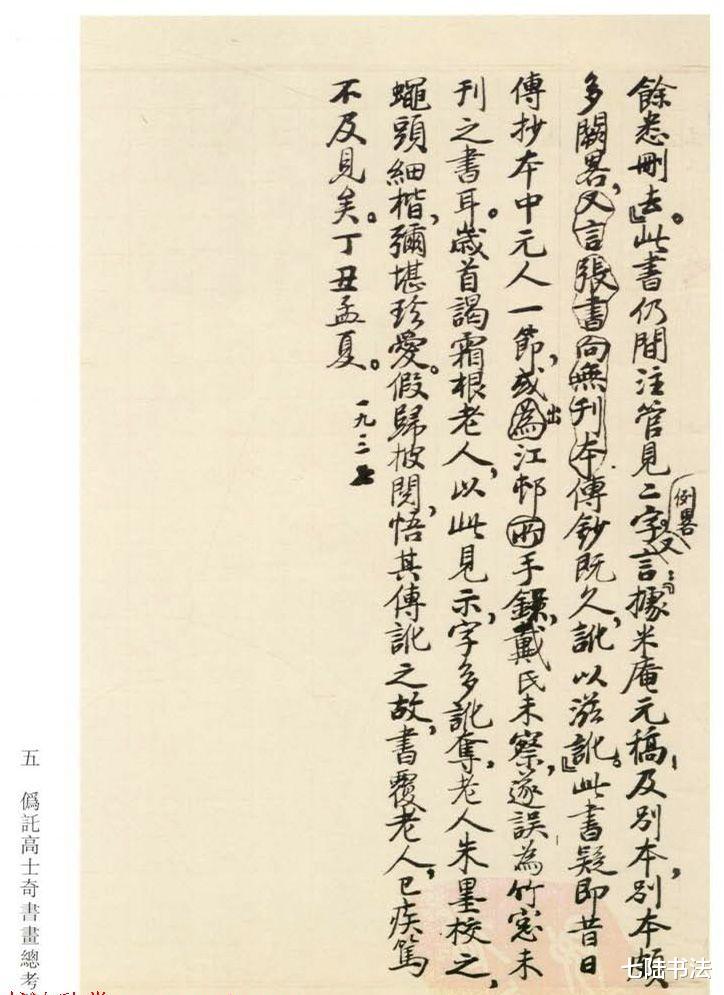 餘悉刪去。』此書仍間注管見二字又言：『據米庵元稿，及別本，別本頗
倒畧
多闕畧，又言張書向無刊本傳鈔既久，訛以滋訛。』此書疑即昔日
傳抄本中元人一節，或為江邨所手錄，戴氏未察，遂誤為竹窓未
出
刊之書耳。歲首謁霜根老人，以此見示，字多訛奪，老人朱墨校之，
蠅頭細楷，彌堪珍愛。假歸披閱，悟其傳訛之故，書覆老人，已疾篤
不及見矣。丁丑孟夏。
一九三七
五 僞託高士奇書畫總考
七陆书法